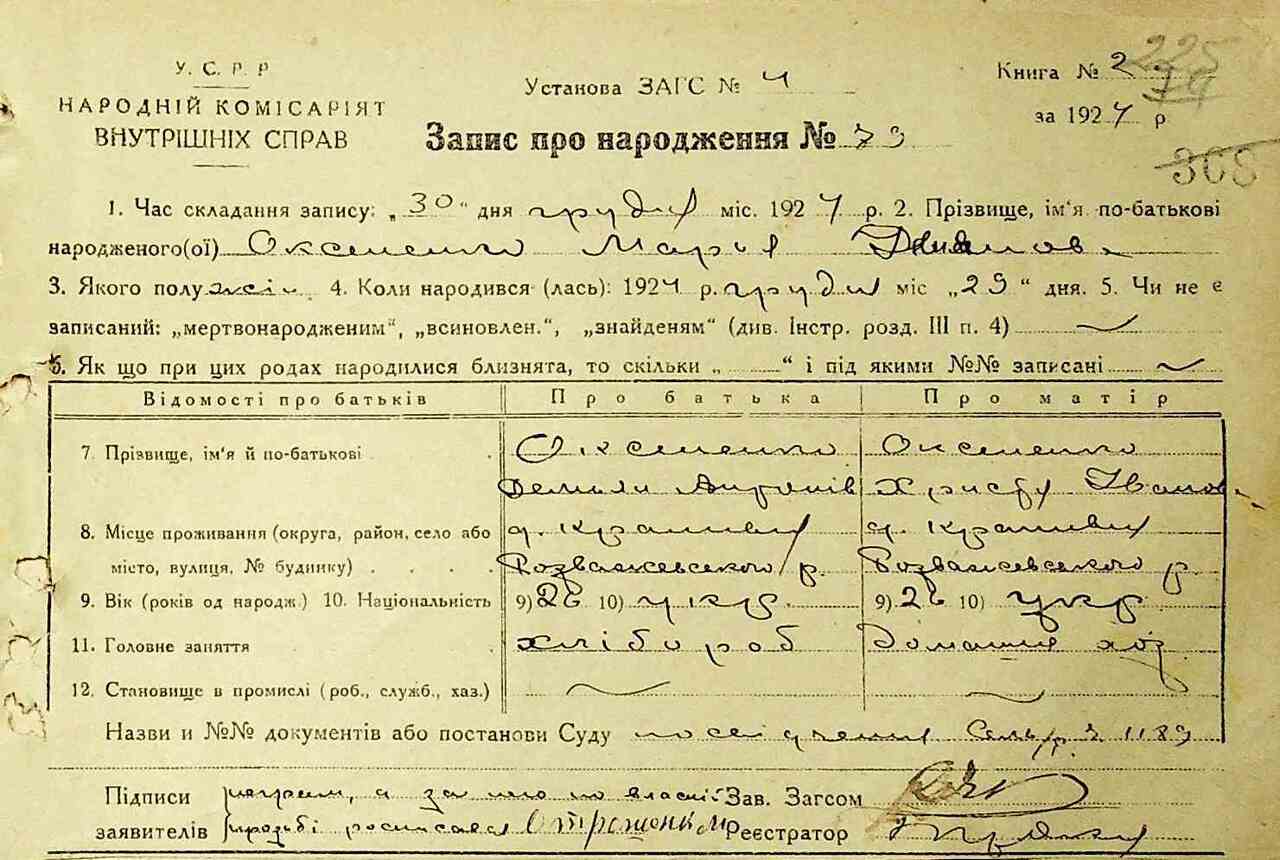 У. С. Р. Р
НАРОДНІЙ КОМІСАРІЯТ
ВНУТРІШНІХ СПРАВ
Установа ЗАГС № 4
Запис про народження № 73
Книга № 2
225
за 1924 р
368
1. Час складання запису: „30" дня грудня міс. 1924 р. 2. Прізвище, ім'я по-батькові
народженого(ої) Оксененко Марія
3. Якого полу жін 4. Коли народився (лась): 1924 р. грудня міс „29" дня. 5. Чи не є
записаний: „мертвонародженим", „всиновлен.", „знайденям" (див. Інстр. розд. III п. 4)
6. Як що при цих родах народилися близнята, то скільки „ " і під якими №№ записані
Відомості про батьків Про батька Про матір
7. Прізвище, ім'я й по-батькові Оксененко Оксененко
Антонів Іванов
8. Місце проживання (округа, район, село або
місто, вулиця, № будинку) Розважевського р. Розважевського р.
9. Вік (років од народж.) 10. Національність 9) 26 10) укр. 9) 26 10) укр.
11. Головне заняття хлібороб Домашня хоз
12. Становище в промислі (роб., служб., хаз.)
Назви и №№ документів або постанови Суду посвідчення Сельр. 1189
Підписи а за його по власній Зав. Загсом
заявителів прозьбі росписався Реєстратор